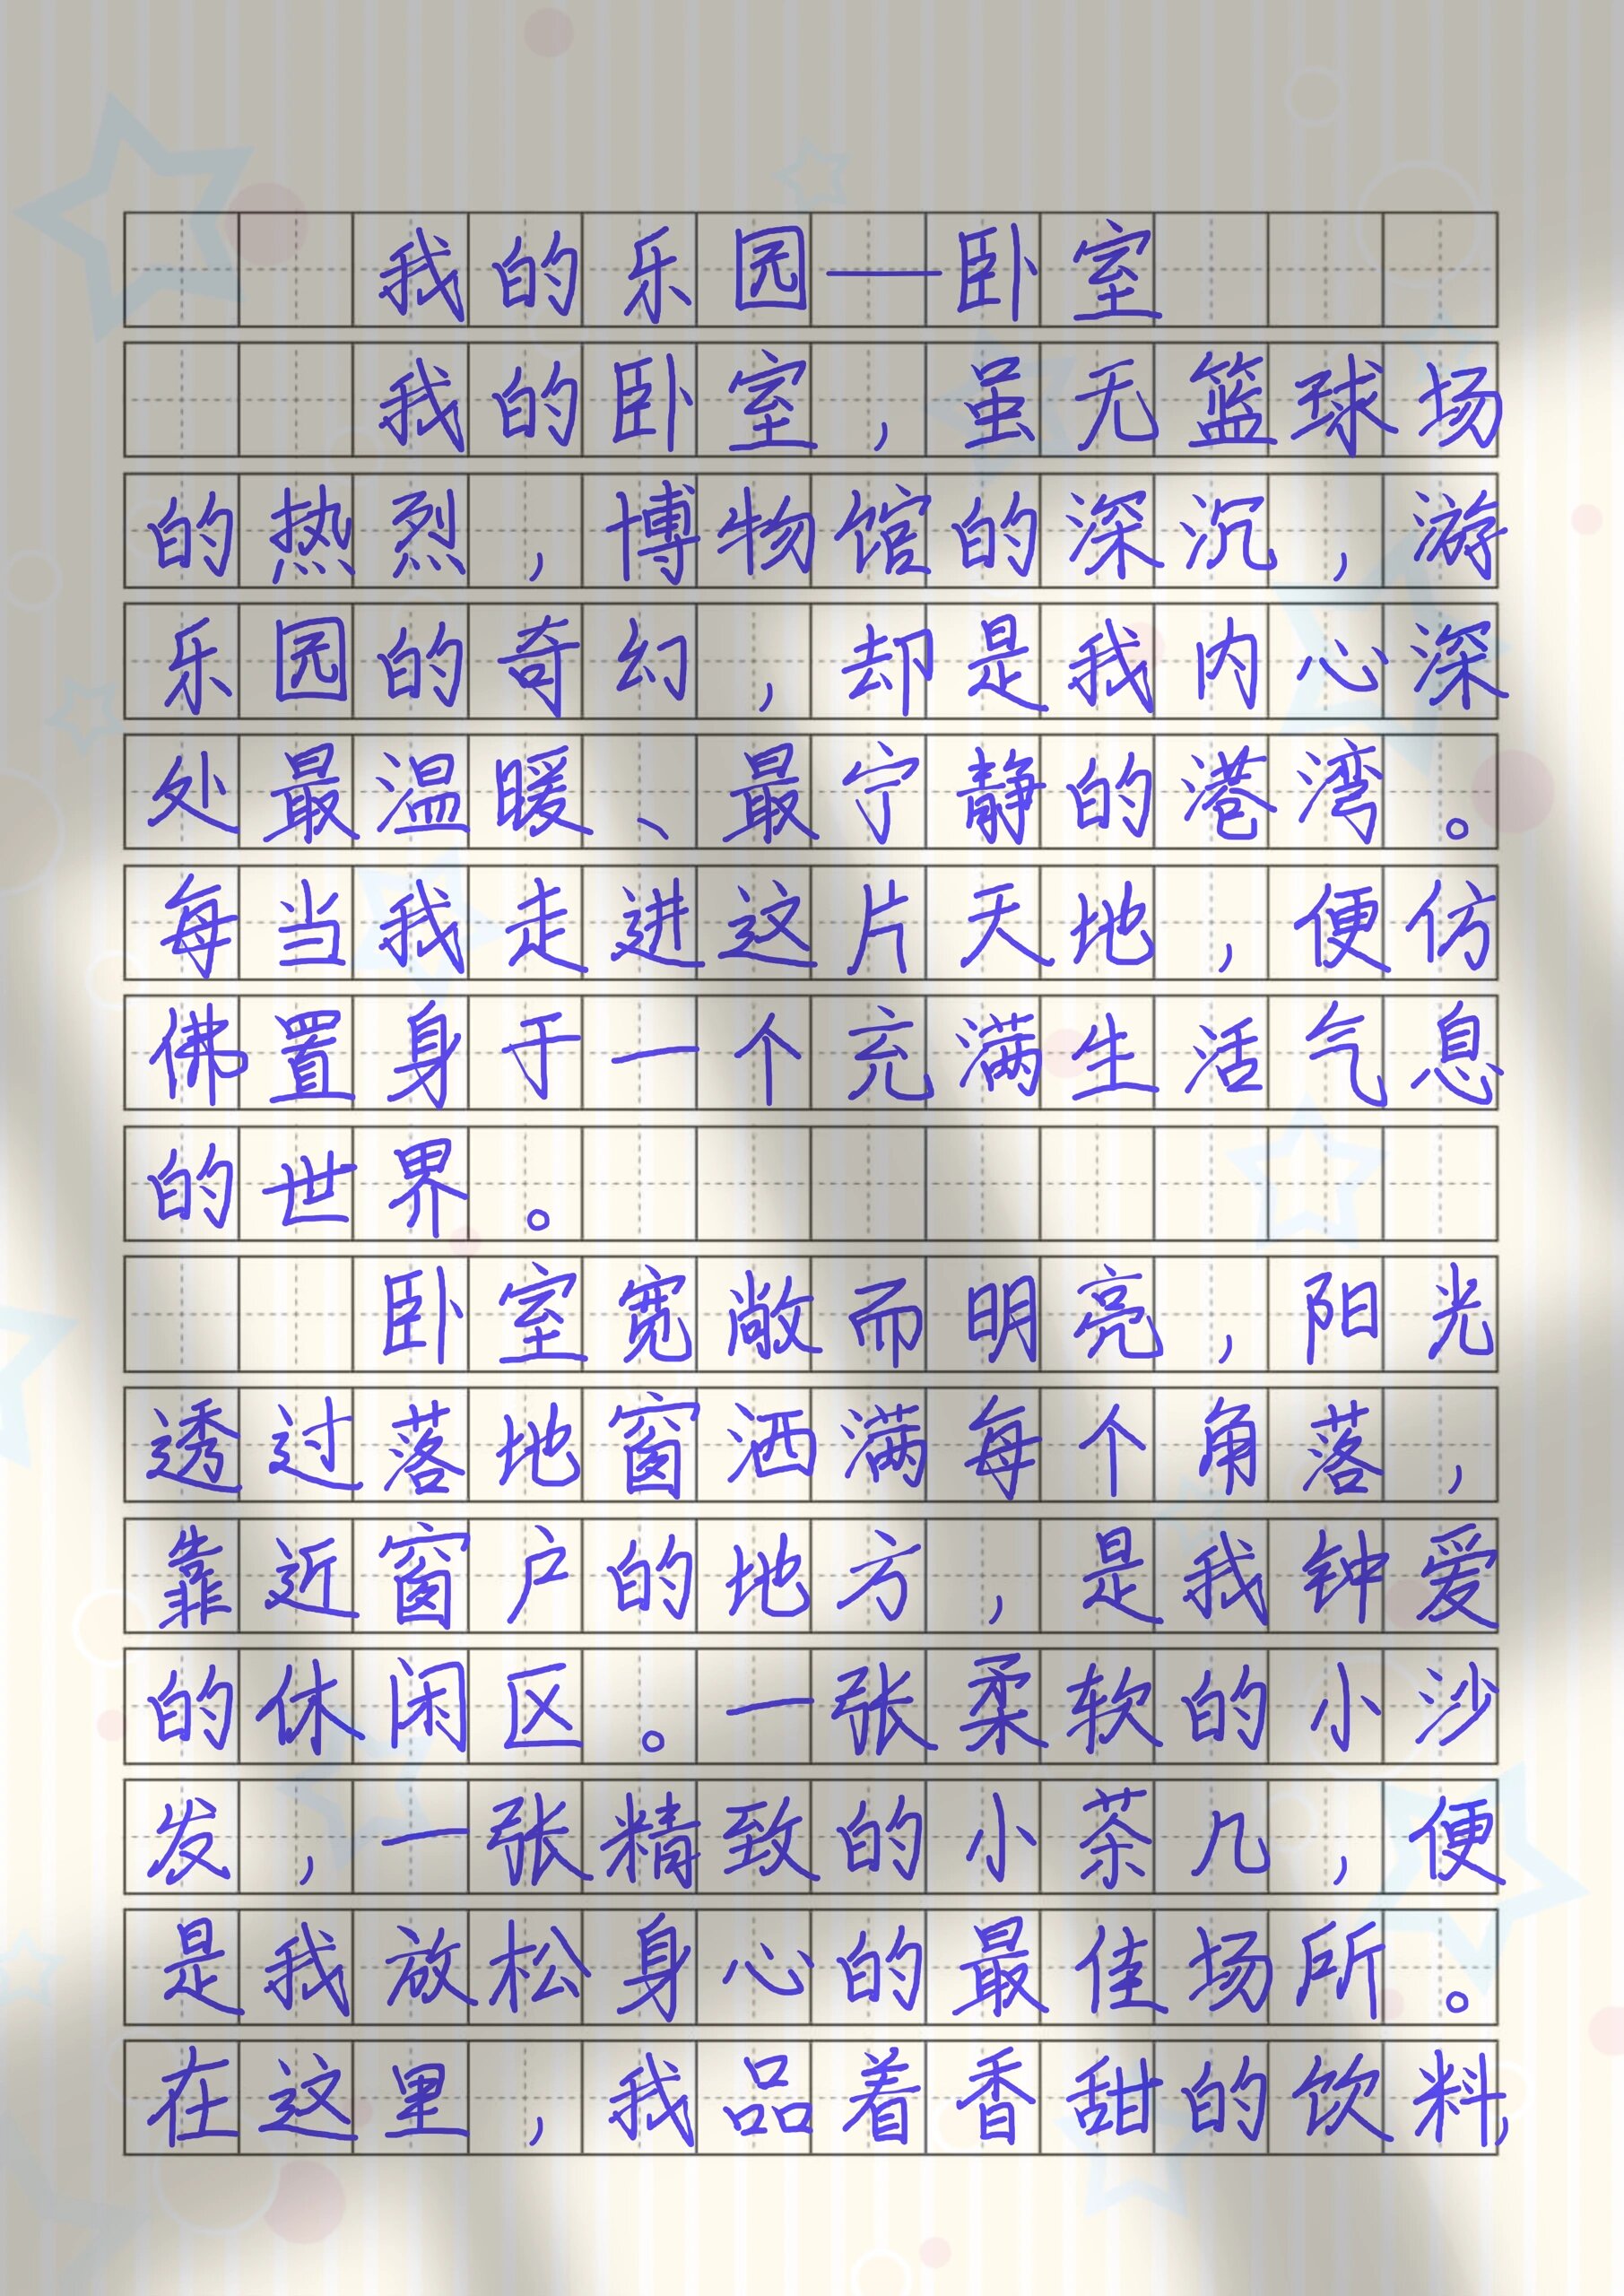 我的乐园—卧室
我的卧室，虽无篮球场
的热烈，博物馆的深沉，游
乐园的奇幻，却是我内心深
处最温暖、最宁静的港湾。
每当我走进这片天地，便仿
佛置身于一个充满生活气息
的世界。
卧室宽敞而明亮，阳光
透过落地窗洒满每个角落，
靠近窗户的地方，是我钟爱
的休闲区。一张柔软的小沙
发，一张精致的小茶几，便
是我放松身心的最佳场所。
在这里，我品着香甜的饮料，